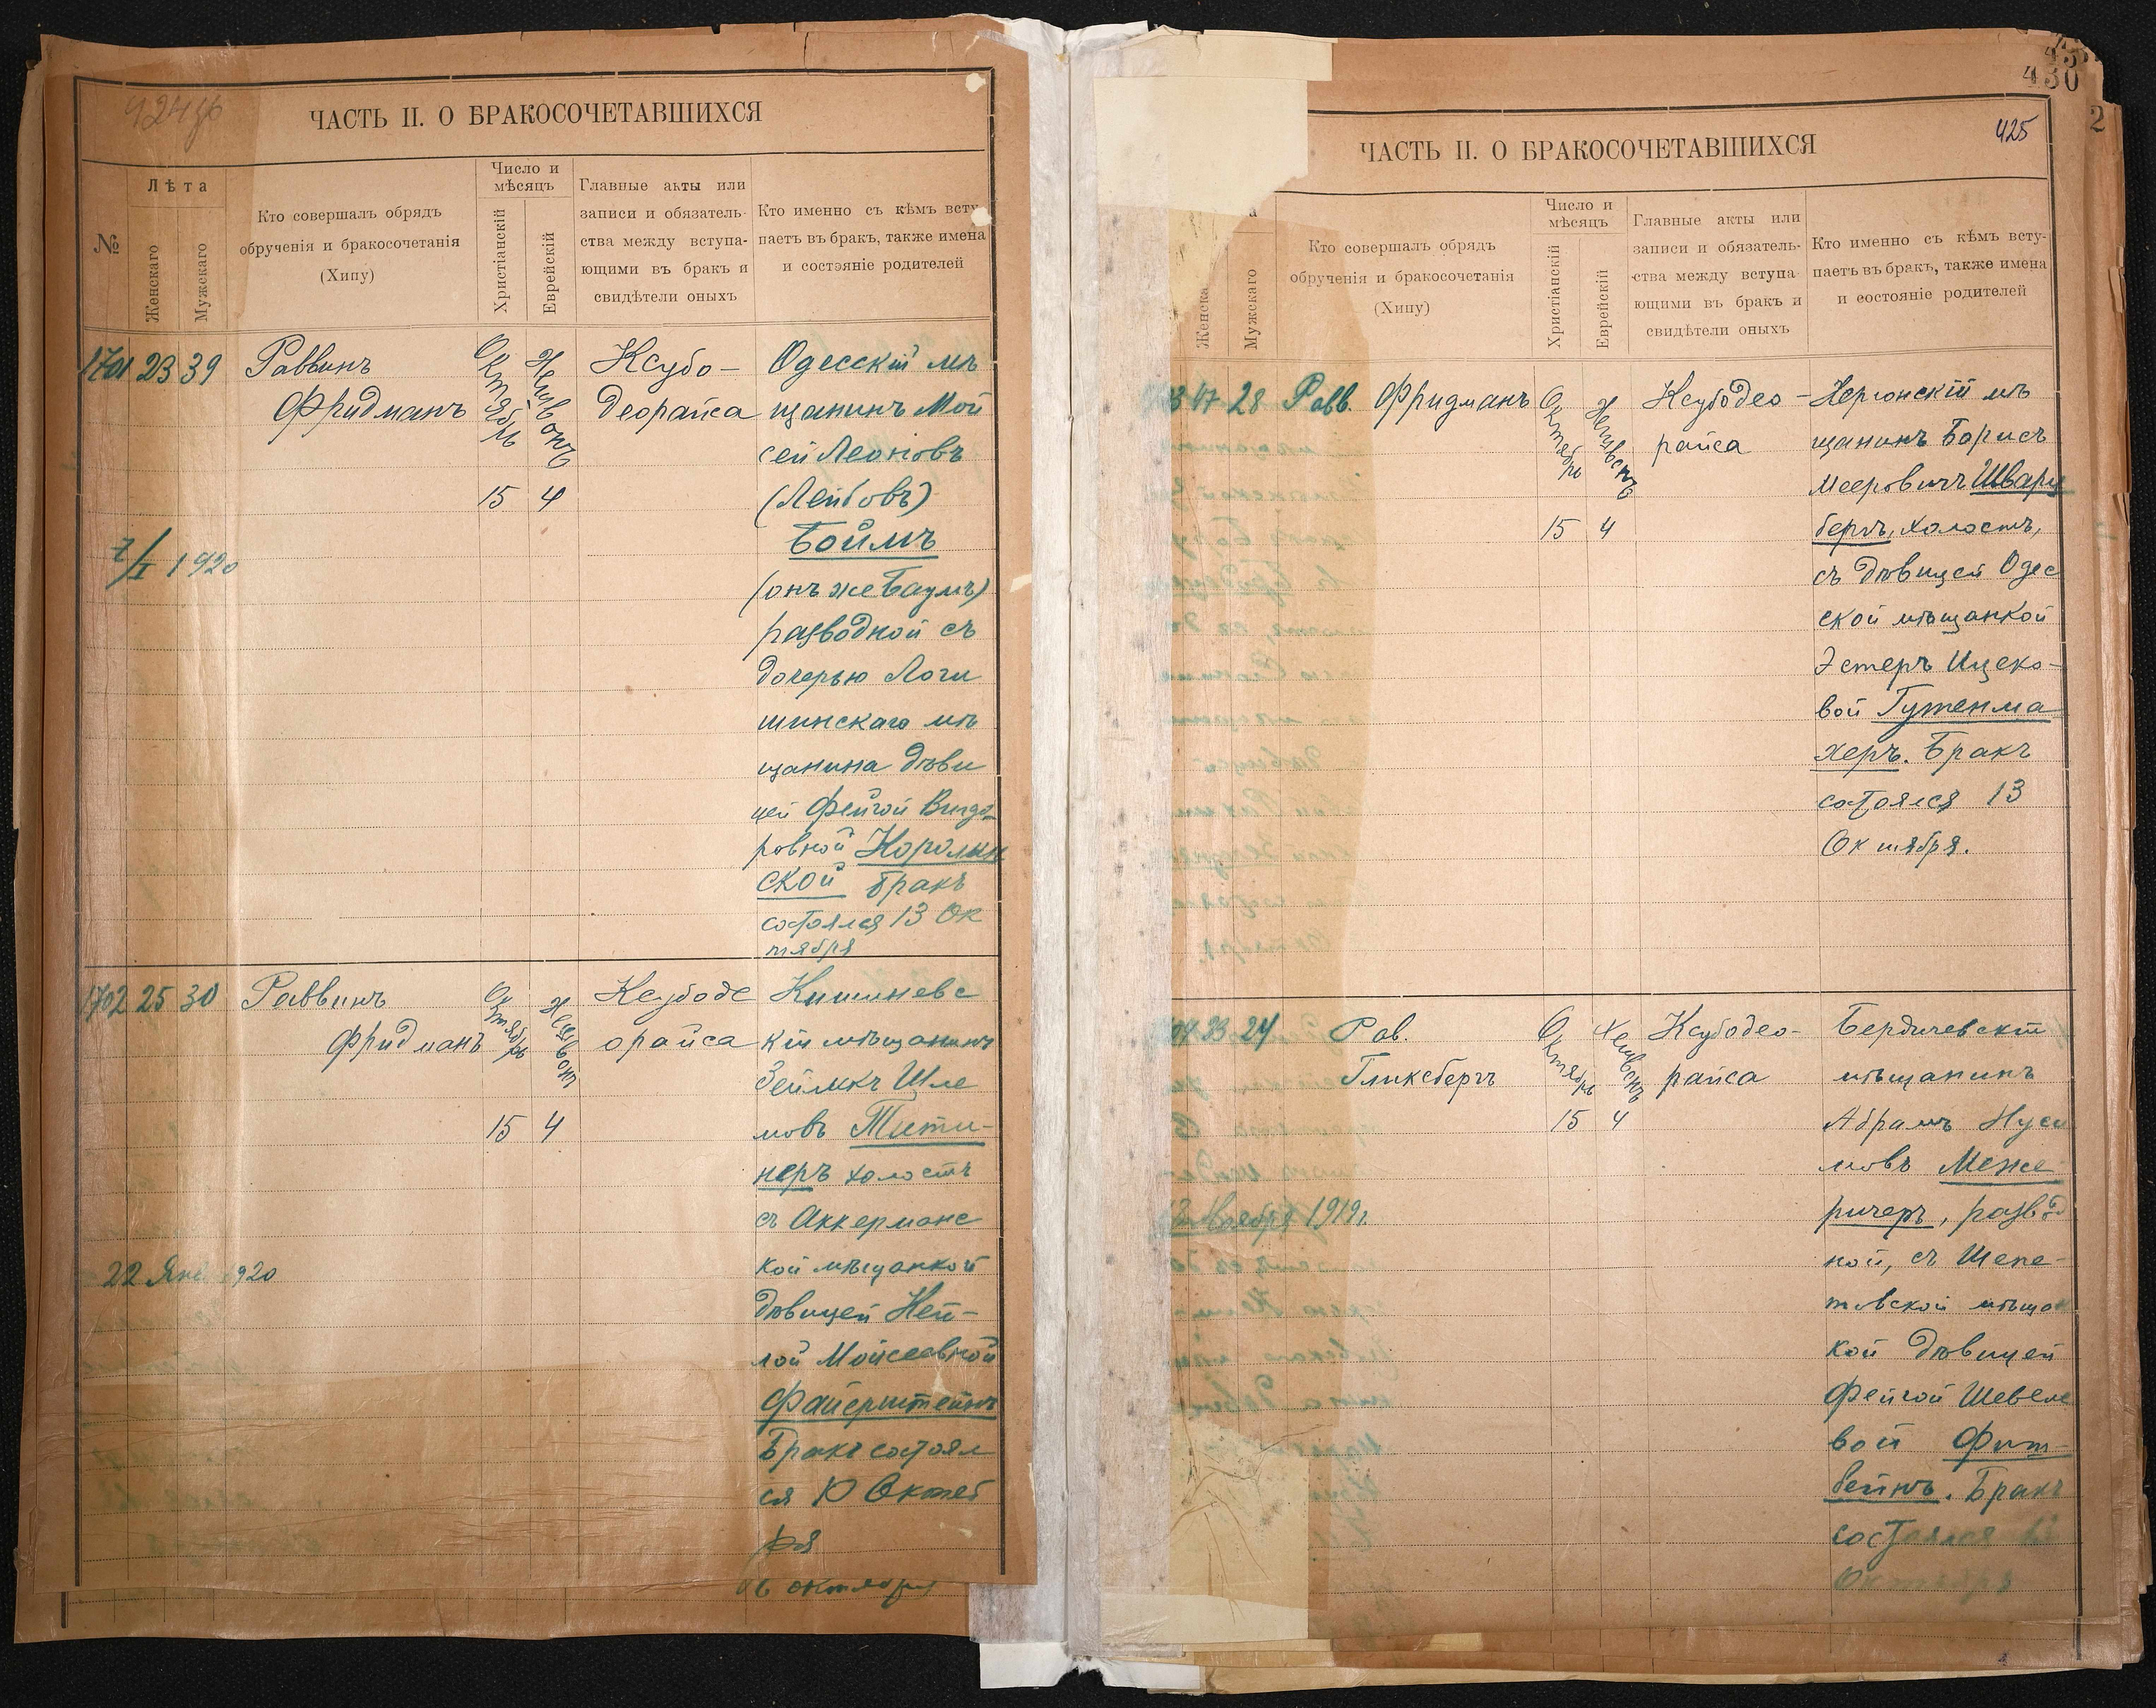 924об
ЧАСТЬ II. О БРАКОСОЧЕТАВШИХСЯ
№
Лѣта
Женскаго
Мужскаго
Кто совершалъ обрядъ
обрученія и бракосочетанія
(Хипу)
Число и
мѣсяцъ
Христіанскій
Еврейскій
Главные акты или
записи и обязатель-
ства между вступа-
ющими въ бракъ и
свидѣтели оныхъ
Кто именно съ кѣмъ всту
паетъ въ бракъ, также имена
и состояніе родителей
1701 23 39
Раввинъ
Фридманъ
Октябрь
15
Хешвонъ
4
Ксубо-
Деорайса
Одесскій мѣ
щанинъ Мой
сей Леоновъ
(Лейбовъ)
Боймъ
(онъ же Баумъ)
разводной съ
дочерью Логи
шинскаго мѣ
щанина дѣви
цей Фейгой Вигдо
ровной
ской бракъ
состоялся 13 Ок
тября
7/I 1920
1702 25 30
Раввинъ
Фридманъ
Октябрь
15
Хешвонъ
4
Ксубоде
орайса
Кишиневс
кій мѣщанинъ
Зейликъ Шле
мовъ Тети-
неръ холостъ
съ Аккерманс
кой мѣщанкой
дѣвицей Хей-
лой Мойсеевной
Файерштейнъ
Бракъ состоял
ся 10 Октяб
ря
22 Янв 1920
октября
430
425
2
ЧАСТЬ II. О БРАКОСОЧЕТАВШИХСЯ
а
Женска
Мужскаго
Кто совершалъ обрядъ
обрученія и бракосочетанія
(Хипу)
Число и
мѣсяцъ
Христіанскій
Еврейскій
Главные акты или
записи и обязатель-
ства между вступа
ющими въ бракъ и
свидѣтели оныхъ
Кто именно съ кѣмъ всту-
паетъ въ бракъ, также имена
и состояніе родителей
3 47 28
Равв. Фридманъ
Октябрь
15
Хешвонъ
4
Ксубодео-
райса
Херсонскій мѣ
щанинъ Борисъ
Мееровичъ Шварц
бергъ, холостъ,
съ дѣвицей Одес
ской мѣщанкой
Эстеръ Ицеко-
вой Гутенма
херъ. Бракъ
состоялся 13
Октября.
04 33 24
Рав.
Гликсбергъ
Октябрь
15
Хешвонъ
4
Ксубодео-
райса
Бердичевскій
мѣщанинъ
Абрамъ Нуси
мовъ Межи
ричеръ, развод
ной, съ Шепе-
товской мѣщан
кой дѣвицей
Фейгой Шевеле
вой Фит-
бейнъ. Бракъ
состоялся
Октября
Ноября 1919г.